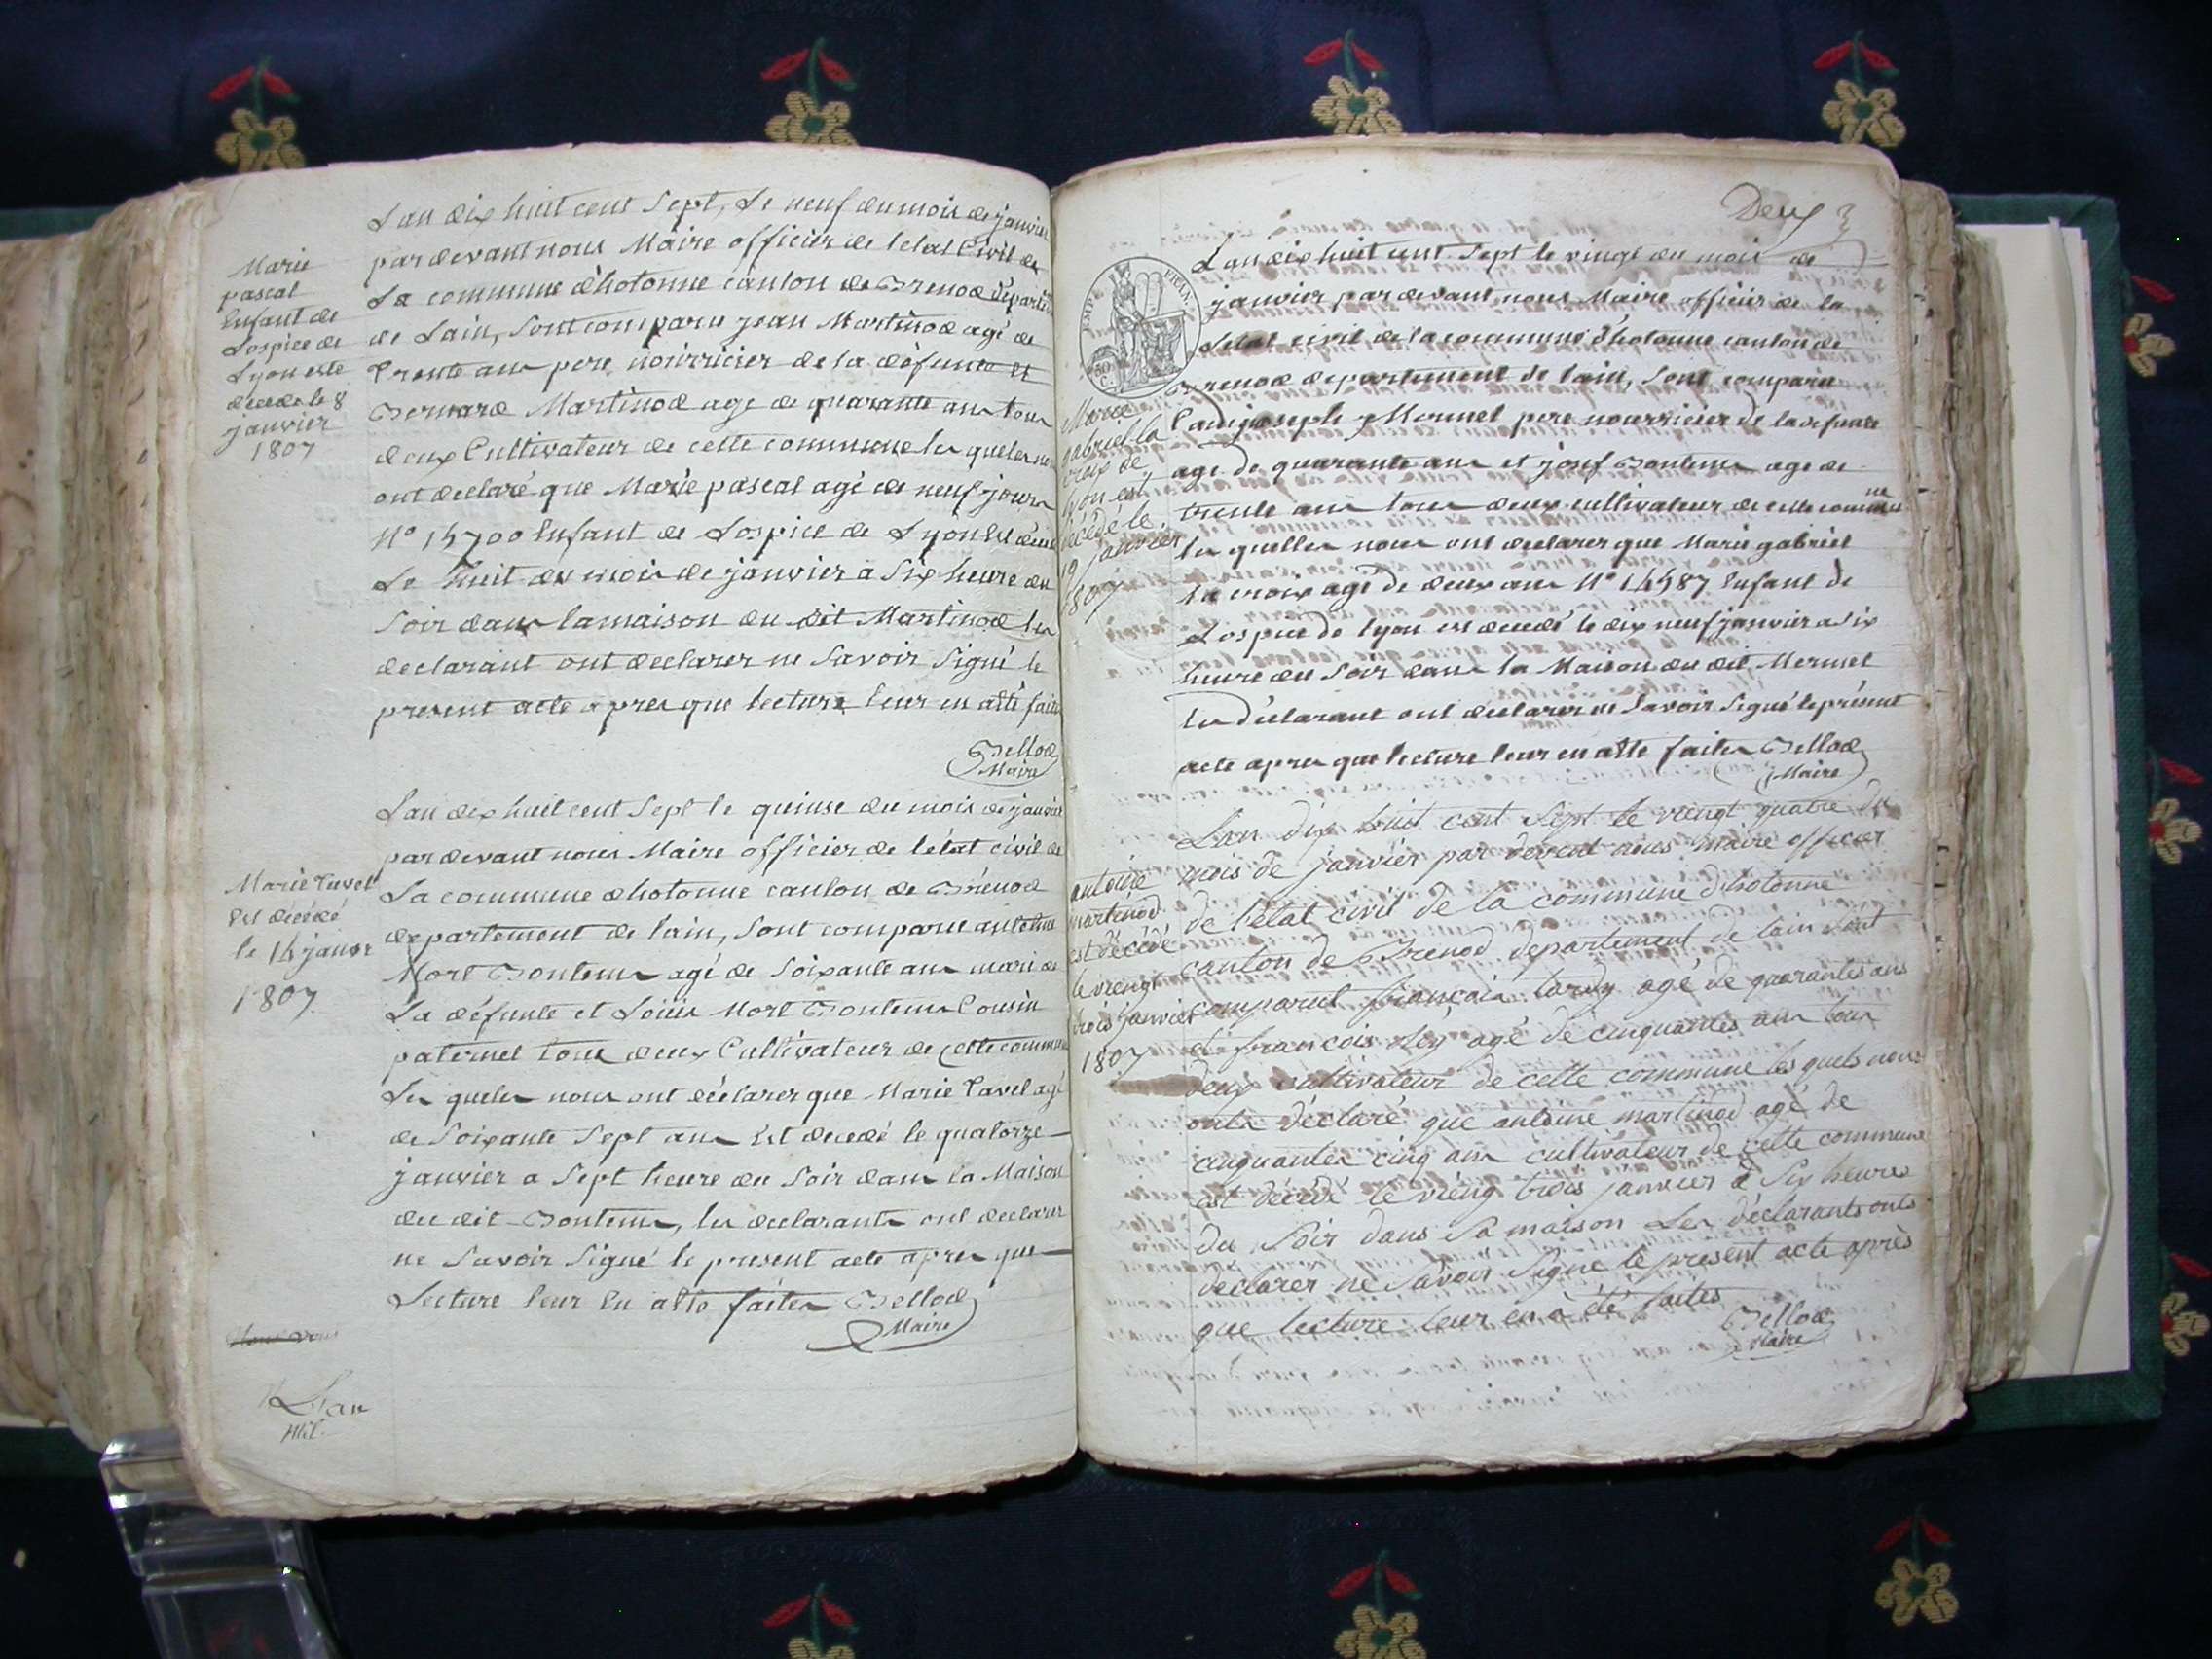 Marie
pascal
Enfant de
Lospice de
Lyon este
decede le 8
janvier
1807
Lan dix huit cent Sept, Le neuf du mois de janvier
par devant nous Maire officier de letat Civil de
La commune d'hotonne canton de Brenod départem
de Lain, Sont comparu jean Martinod agé de
trente ans pere nourricier de la défunte et
Bernard Martinod age de quarante ans tous
deux Cultivateur de cette commune les quels nous
ont declaré que Marie pascal agé de neuf jours
N° 14700 Enfant de Lospice de Lyon Est décédé
Le huit du mois de janvier a Six heure du
Soir dans la maison du dit Martinod les
declarant ont declarer ne Savoir Signé le
present acte apres que lecture leur en atté faite
Bellod
Maire
Marie Cavel
Est décédé
le 14 janvr
1807
Lan dix huit cent Sept le quinse du mois de janvier
par devant nous Maire officier de létat civil de
La commune dhotonne canton de Brénod
departement de lain, Sont comparu anthelme
Mort Bontems agé de Soixante ans mari de
La défunte et Loüis Mort Bontems Cousin
paternel tous deux Cultivateur de cette commune
Les quels nous ont déclarer que Marie Cavel agé
de Soixante Sept ans Est decedé le quatorze
janvier a Sept heure du Soir dans la Maison
du dit Bontems, les declarants ont declarer
ne Savoir Signé le present acte apres que
Lecture leur En atté faites Bellod
Maire
Lan
Mil
Deux 3
EMPE FRAN
50 C
Marie
gabriel la
croix de
lyon est
décédé le
19 janvier
1807
Lan dix huit cent Sept le vingt du mois de
janvier par devant nous Maire officier de la
Letat civil de la commune d'hotonne canton de
Brenod departement de lain, Sont comparu
Claud joseph Mermet pere nourricier de la defunte
age de quarante ans et josef Bontems age de
trente ans tous deux cultivateur de cette commune
les quelles nous ont declarer que Marie gabriel
La croix age de deux ans N° 14587 Enfant de
Lospice de lyon est decedé le dix neuf janvier a Six
heure du Soir dans la Maison du dit Mermet
les déclarant ont declarer ne Savoir Signé le présent
acte apres que lecture leur en atté faites Bellod
Maire
antoine
martinod
est décédé
le viengt
trois janvier
1807
Lan dix huit cent Sept le viengt quatre du
mois de janvier par devent nous maire officier
de létat civil de la commune d'hotonne
canton de Brenod departement de lain sont
comparut françois tardy agé de quarantes ans
et françois Ney agé de cinquantes ans tous
deux cultivateur de cette commune les quels nous
onts déclaré que antoine martinod agé de
cinquantes cinq ans cultivateur de cette commune
est décédé le viengt trois janvier à Six heures
du Soir dans Sa maison Les déclarants onts
declarer ne Savoir Signe le present acte après
que lecture leur en a été faites
Bellod
Maire